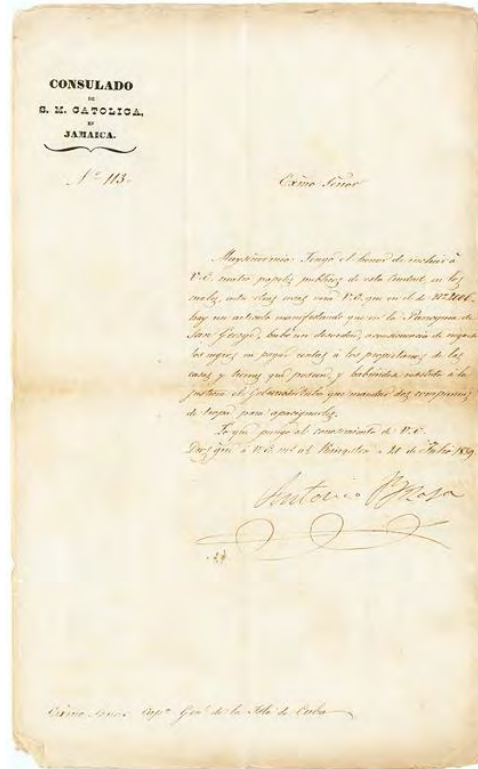 CONSULADO
DE
S. M. CATOLICA,
EN
JAMAICA.
Nº 113.
Exmo Señor
Muy señor mio: Tengo el honor de incluir à
V.E. cuatro papeles publicos de esta Ciudad, en los
cuales, entre otras cosas verá V.E. que en el de Nº 2106
hay un articulo manifestando que en la Parroquia de
San George, hubo un desorden, a consecuencia de
los negros no pagar rentas à los propietarios de las
casas y tierras que poseen, y habiendo resistido à la
justicia el Gobernador tubo que mandar dos compañias
de tropa para apaciguarlos.
Lo que pongo al conocimiento de V.E.
Dios gue à V.E. ms as Kingston 21 de Julio 1839
Antonio
Exmo Señor Capn Genl de la Isla de Cuba